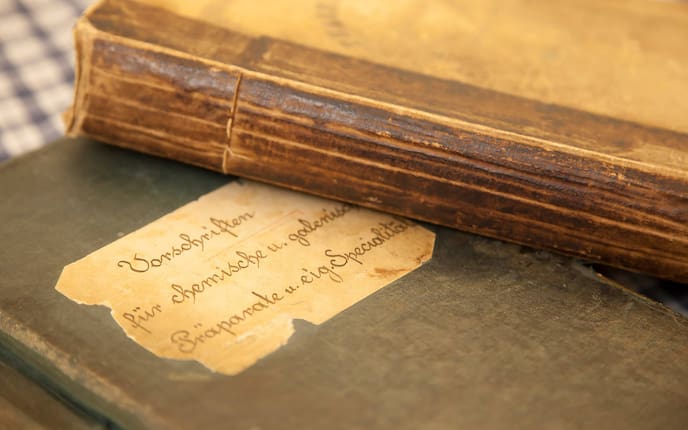 Vorschriften
für chemische u. galenisc
Präparate u. eig. Specialitä